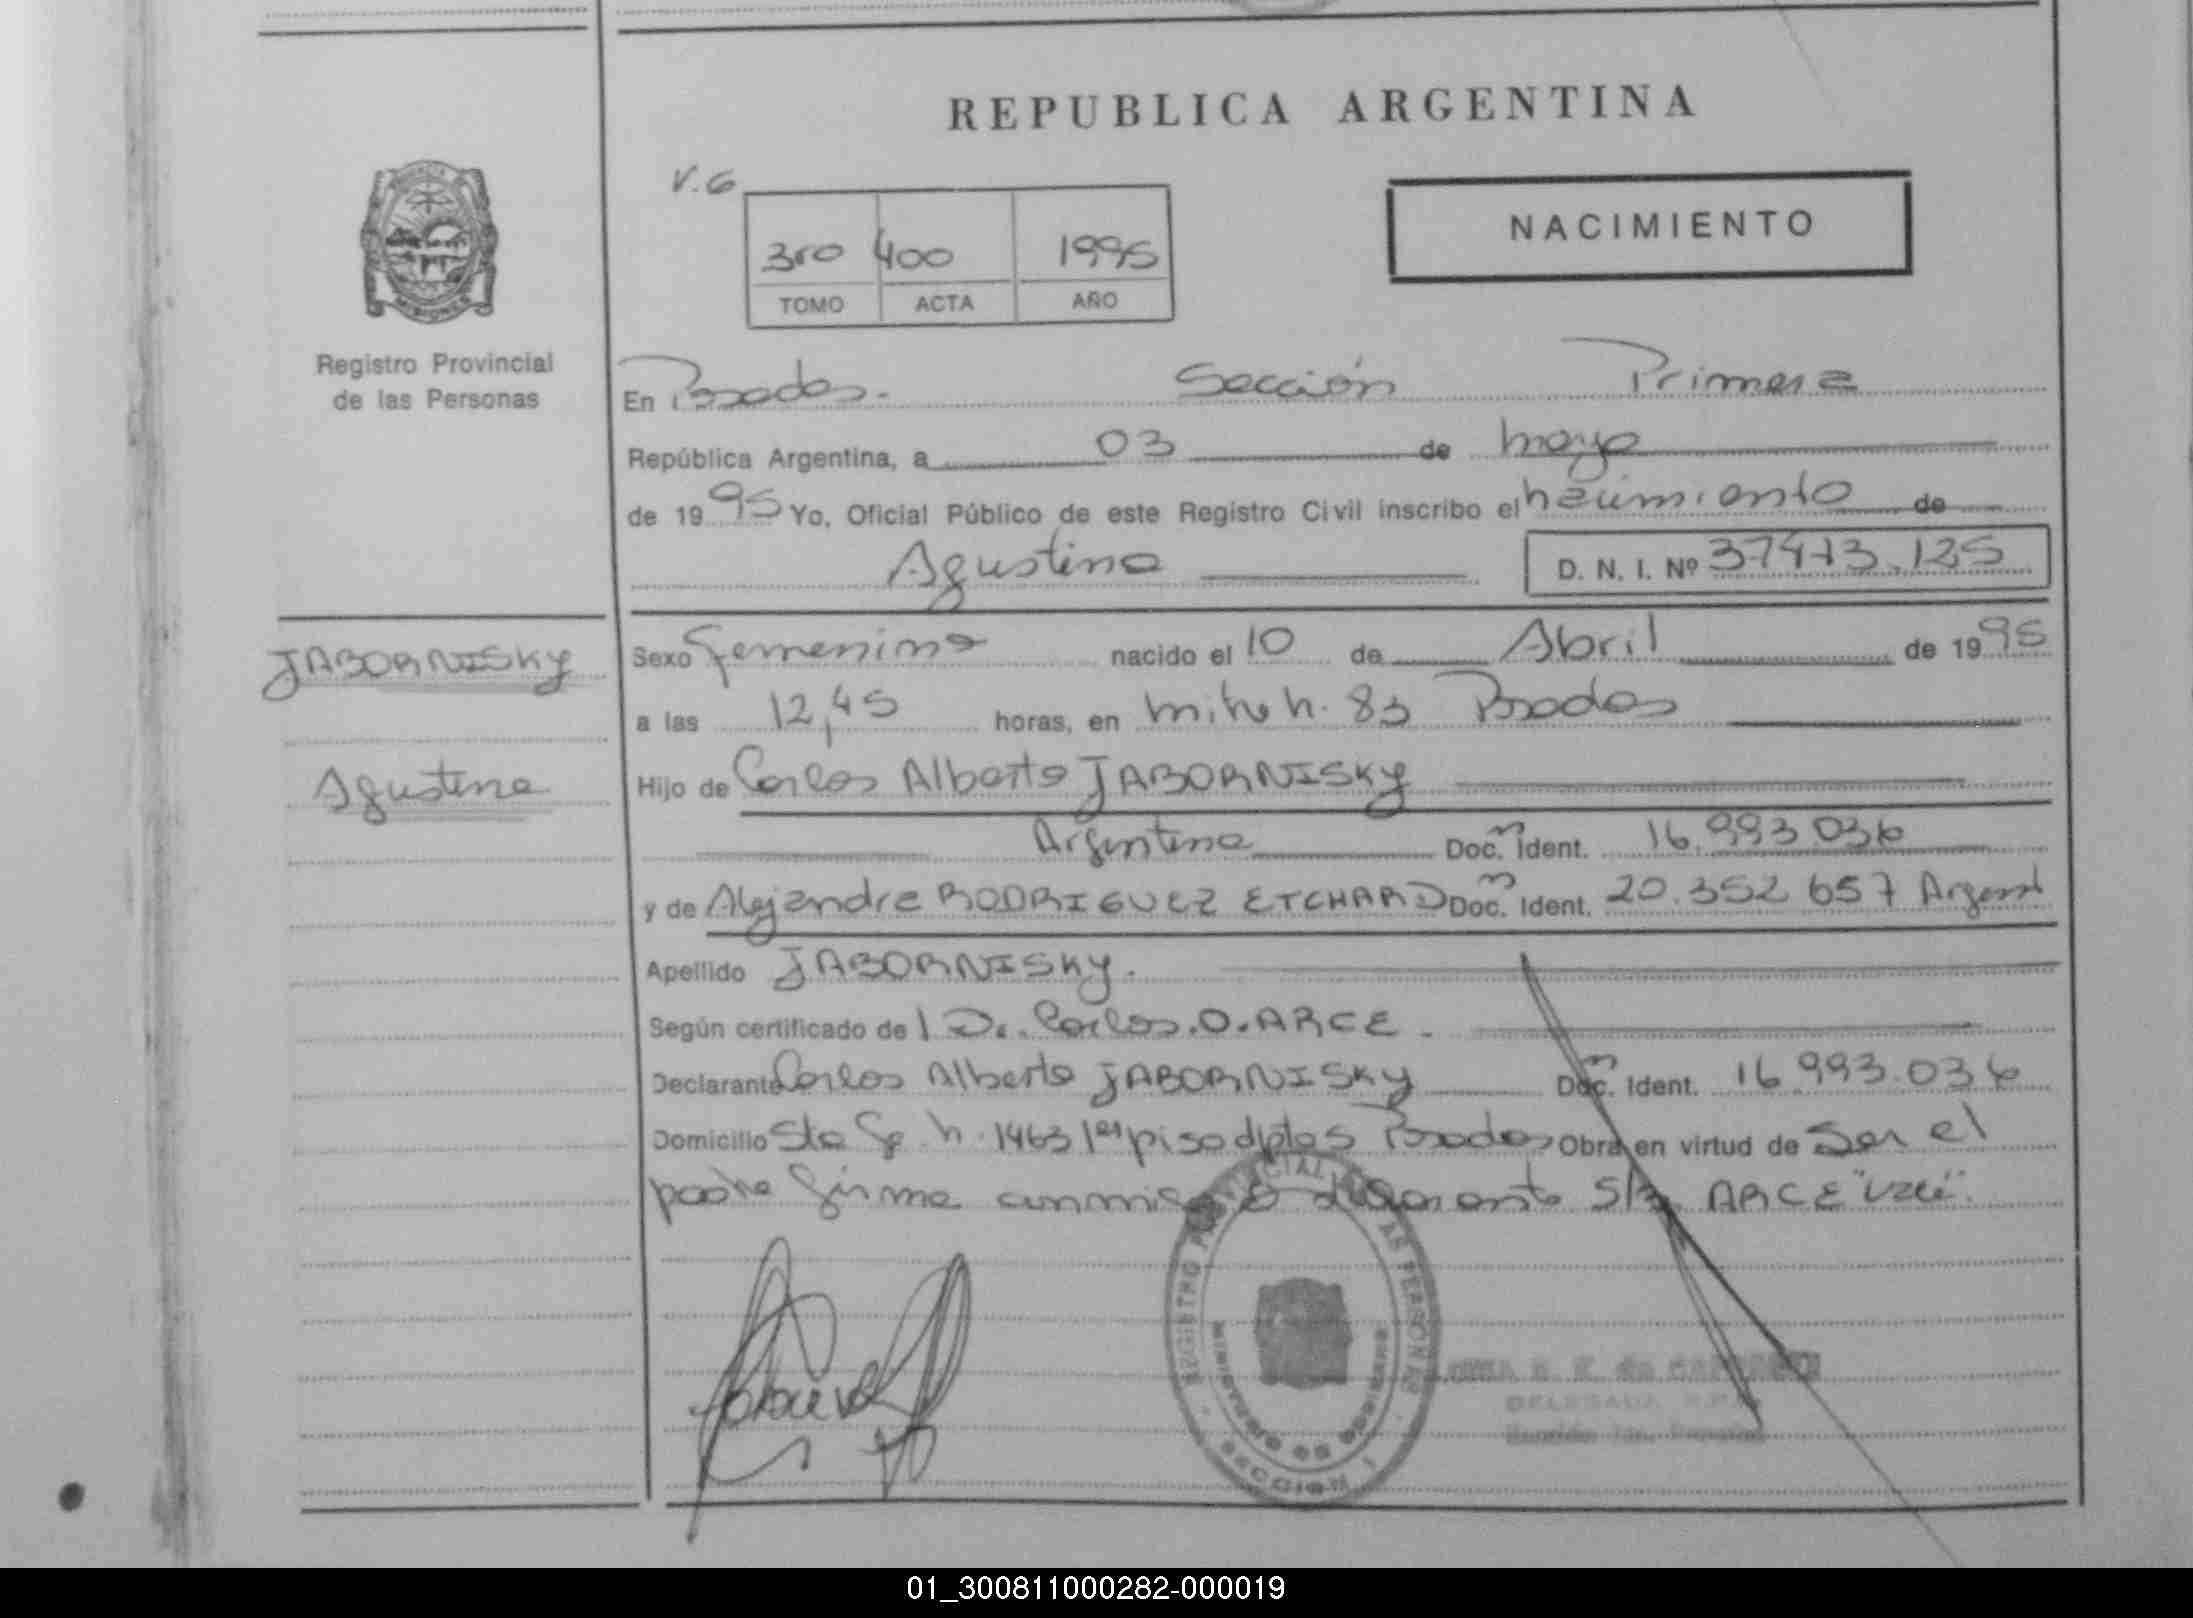 REPUBLICA ARGENTINA
V.G
NACIMIENTO
3ro 400 1995
TOMO ACTA AÑO
MISIONES
Registro Provincial
de las Personas
En Posadas. Sección Primera
República Argentina, a 03 de mayo
de 1995 Yo, Oficial Público de este Registro Civil inscribo el nacimiento de
Agustina D. N. I. Nº 37473.125
JABORNISKY
Sexo Femenino nacido el 10 de Abril de 1995
a las 12,45 horas, en mitre n. 83 Posadas
Agustina
Hijo de Carlos Alberto JABORNISKY
Argentino Doc. m Ident. 16.993.036
y de Alejandra RODRIGUEZ ETCHARD Doc. m Ident. 20.352 657 Argent
Apellido JABORNISKY.
Según certificado de l Dr. Carlos.O.ARCE.
Declarante Carlos Alberto JABORNISKY Doc. m Ident. 16.993.036
Domicilio Sta Fe n. 1463 1er piso dpto 5 Posadas Obra en virtud de Ser el
padre firma conmigo S/B ARCE "vale".
REGISTRO PROVINCIAL DE LAS PERSONAS
MINISTERIO DE GOBIERNO
SECCION 1
DELEGADA R.P.P.
01_300811000282-000019